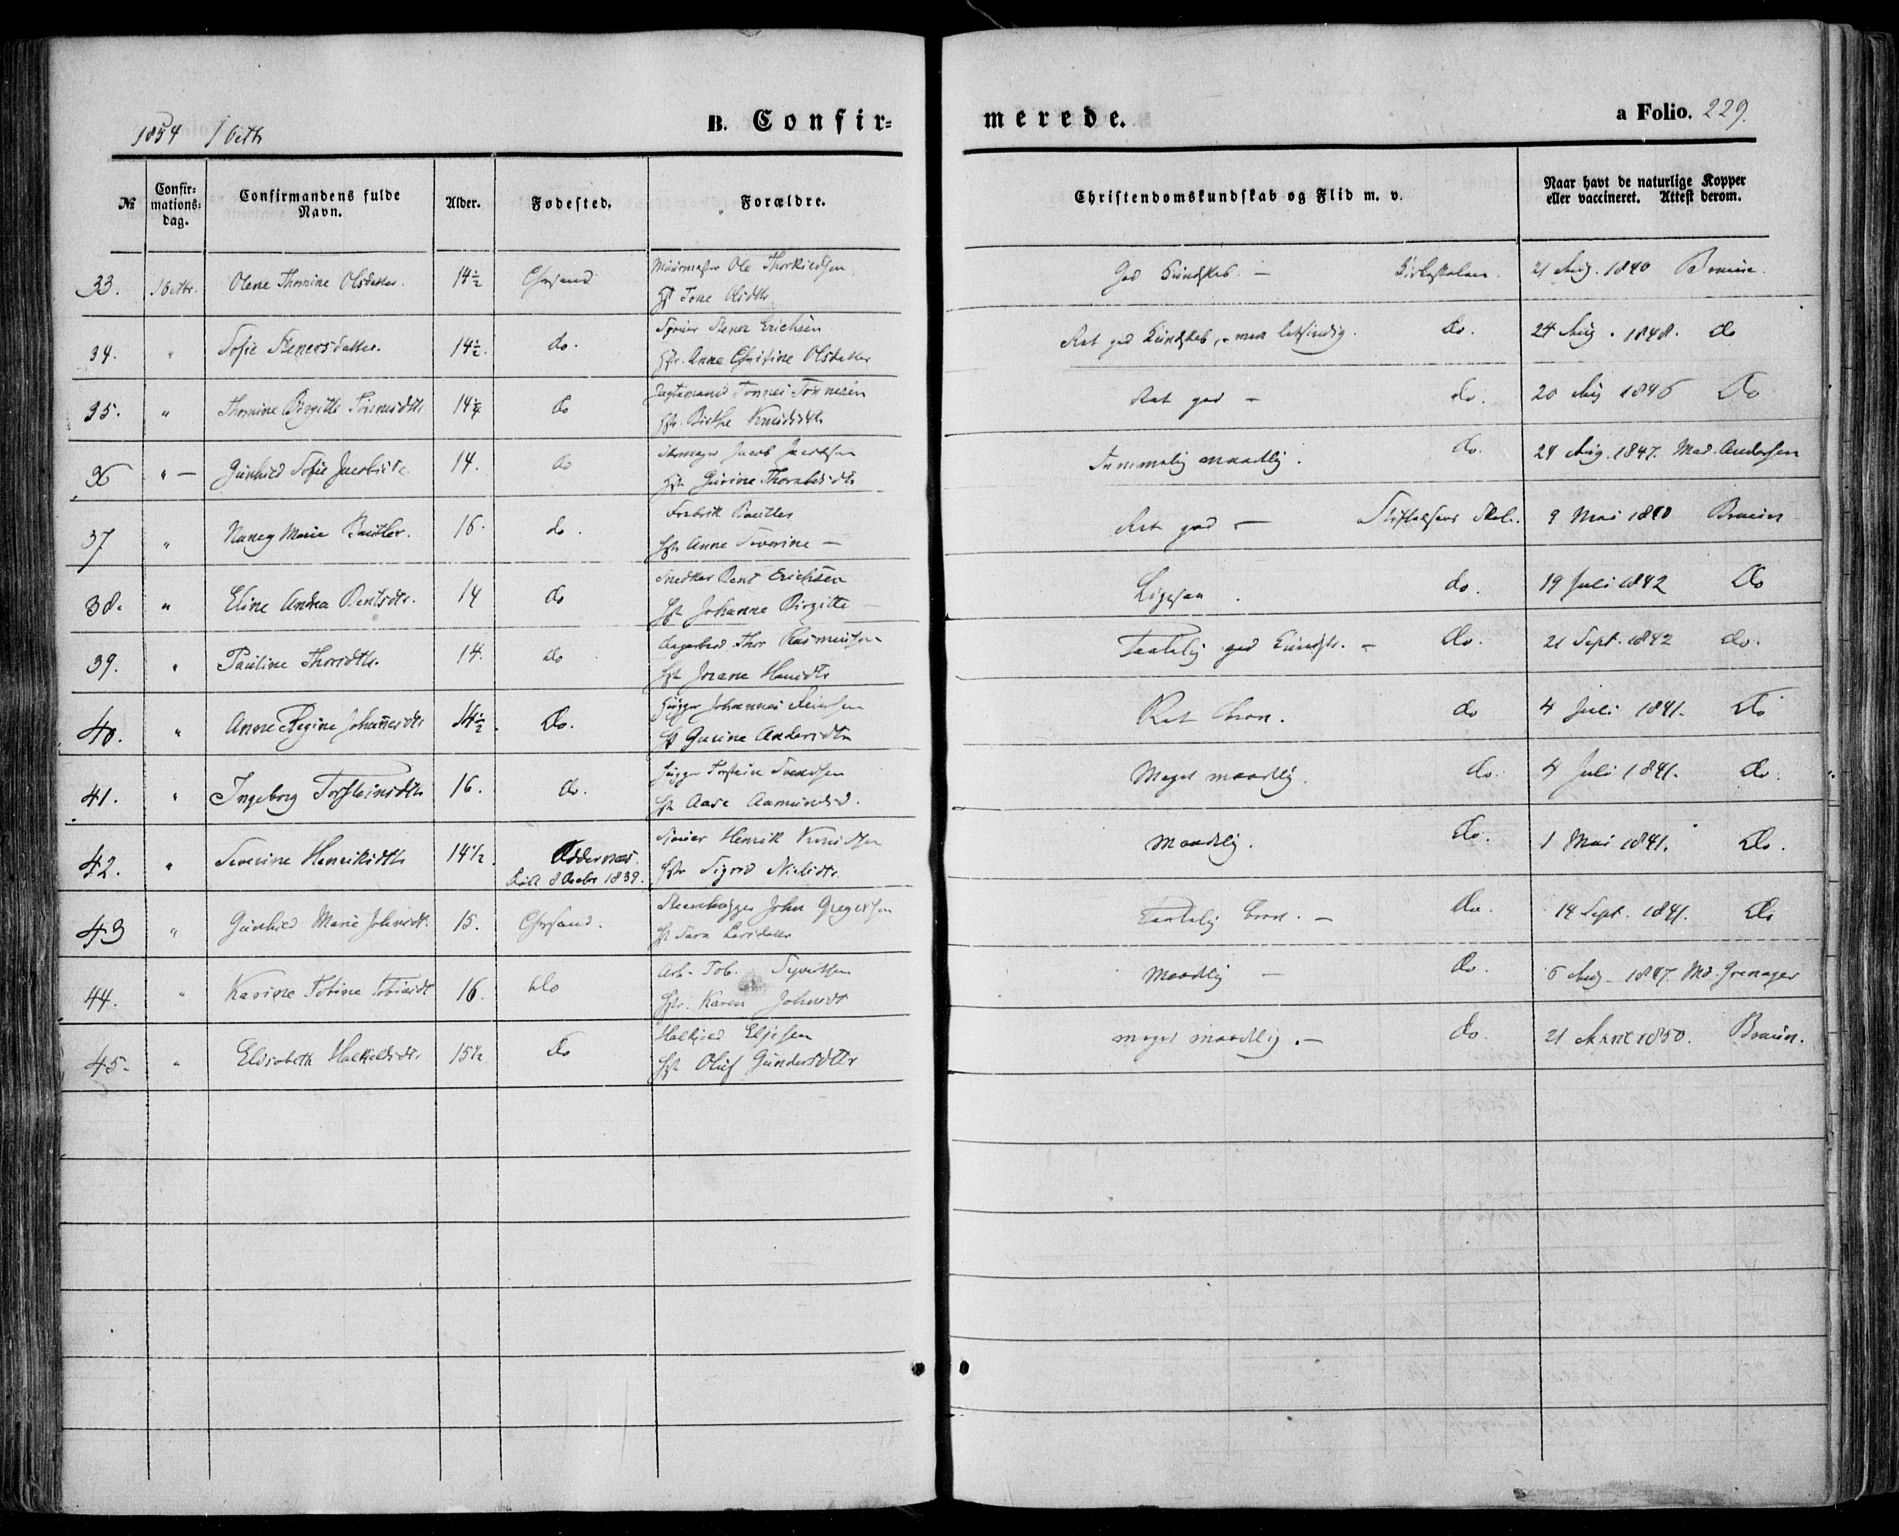 1854 1 Octbr
B. Confirmerede.
a Folio. 229.
№
Confirmationsdag.
Confirmandens fulde Navn.
Alder.
Fødested.
Forældre.
Christendomskundskab og Flid m. v.
Naar havt de naturlige Kopper eller vaccineret. Attest derom.
33. 1 Octbr. Olene Thomine Olsdatter. 14½ Chrsand Muurmester Ole Thorkildsen
Hst Tone Olsdtr
God Kundskab. — Kirkeskolen. 21 Aug. 1840 Braun.
34. " Sofie Stenersdatter. 14½. do. Stener Erichsen
Hstr. Anne Christine Olsdatter
Ret god Kundskab, men letsindig. do. 24 Aug. 1848. do
35. " Thomine Birgitte Tønnesdtr 14¼ do Tønnes Tønnesen
Hstr. Birthe Knudsdtr
Ret god — do. 20 Aug 1846 Do
36 " — Gunhild Sofie Jacobsdtr 14. do Skomager Jacob Jacobsen
Hst Gurine
Temmelig maadelig. do. 24 Aug. 1847. Mad. Andersen
37. " Nancy Marie Beutler. 16. do. Fredrik Beutler
Hstr Anne Severine —
Ret god — Stiftelsens Skole. 9 Mai 1840 Braun
38. " Eline Andrea Bentsdtr. 14 do Snedker Bent Erichsen
Hst Johanne Birgitte —
Ligesaa. do. 19 Juli 1842 Do
39. " Pauline Thorsdtr. 14. do Thor Rasmusen
Hst Josane Hansdtr
Taalelig god Kundsk. — do. 21 Sept. 1842 do.
40. " Anne Regine Johannesdtr 14½. Do. Johannes
Hst Gurine Andersdtr
Ret bra. do 4 Juli 1841. Do
41. " Ingeborg Torsteinsdtr 16. do. Torstein Svendsen
Hst Aase Aamundsd.
Meget maadelig. do. 4 Juli 1841. Do.
42. " Severine Henriksdtr 14½. Oddernes.
8 Decbr 1839. Henrik Knudsen
Hstr Sigrid Nielsdtr.
Maadelig. Do. 1 Mai 1841. Do.
43 " Gunhild Marie Johnsdtr. 15. Chrsand. Steenhugger John Gregersen
Hst Sara Larsdatter
Taalelig bra. — Do. 14 Sept. 1841. Do
44. " Karine Tobine Tobiasdt 16. do Arb. Tob. Syvertsen
Hstr. Karen Johnsdt
Maadelig — do. 6 Aug. 1847. Md. Grenager
45. " Elisabeth Halkieldsdtr 15½ Do Halkjeld Eljesen
Hst Oluf Gundersdtr
meget maadelig. — do. 21 1850. Braun.